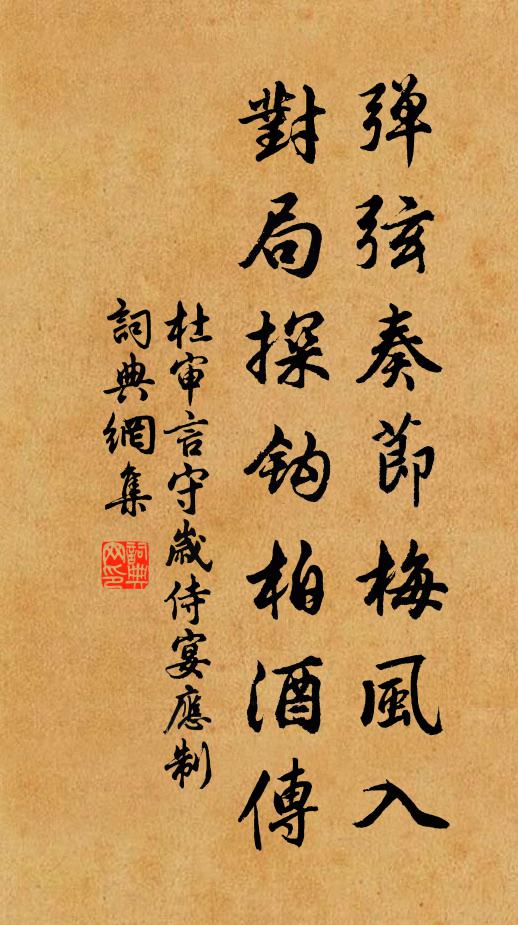 弹弦奏節梅風入
對局探钩柏酒傳
杜审言守歲侍宴應制
詞典網集
詞典
网印